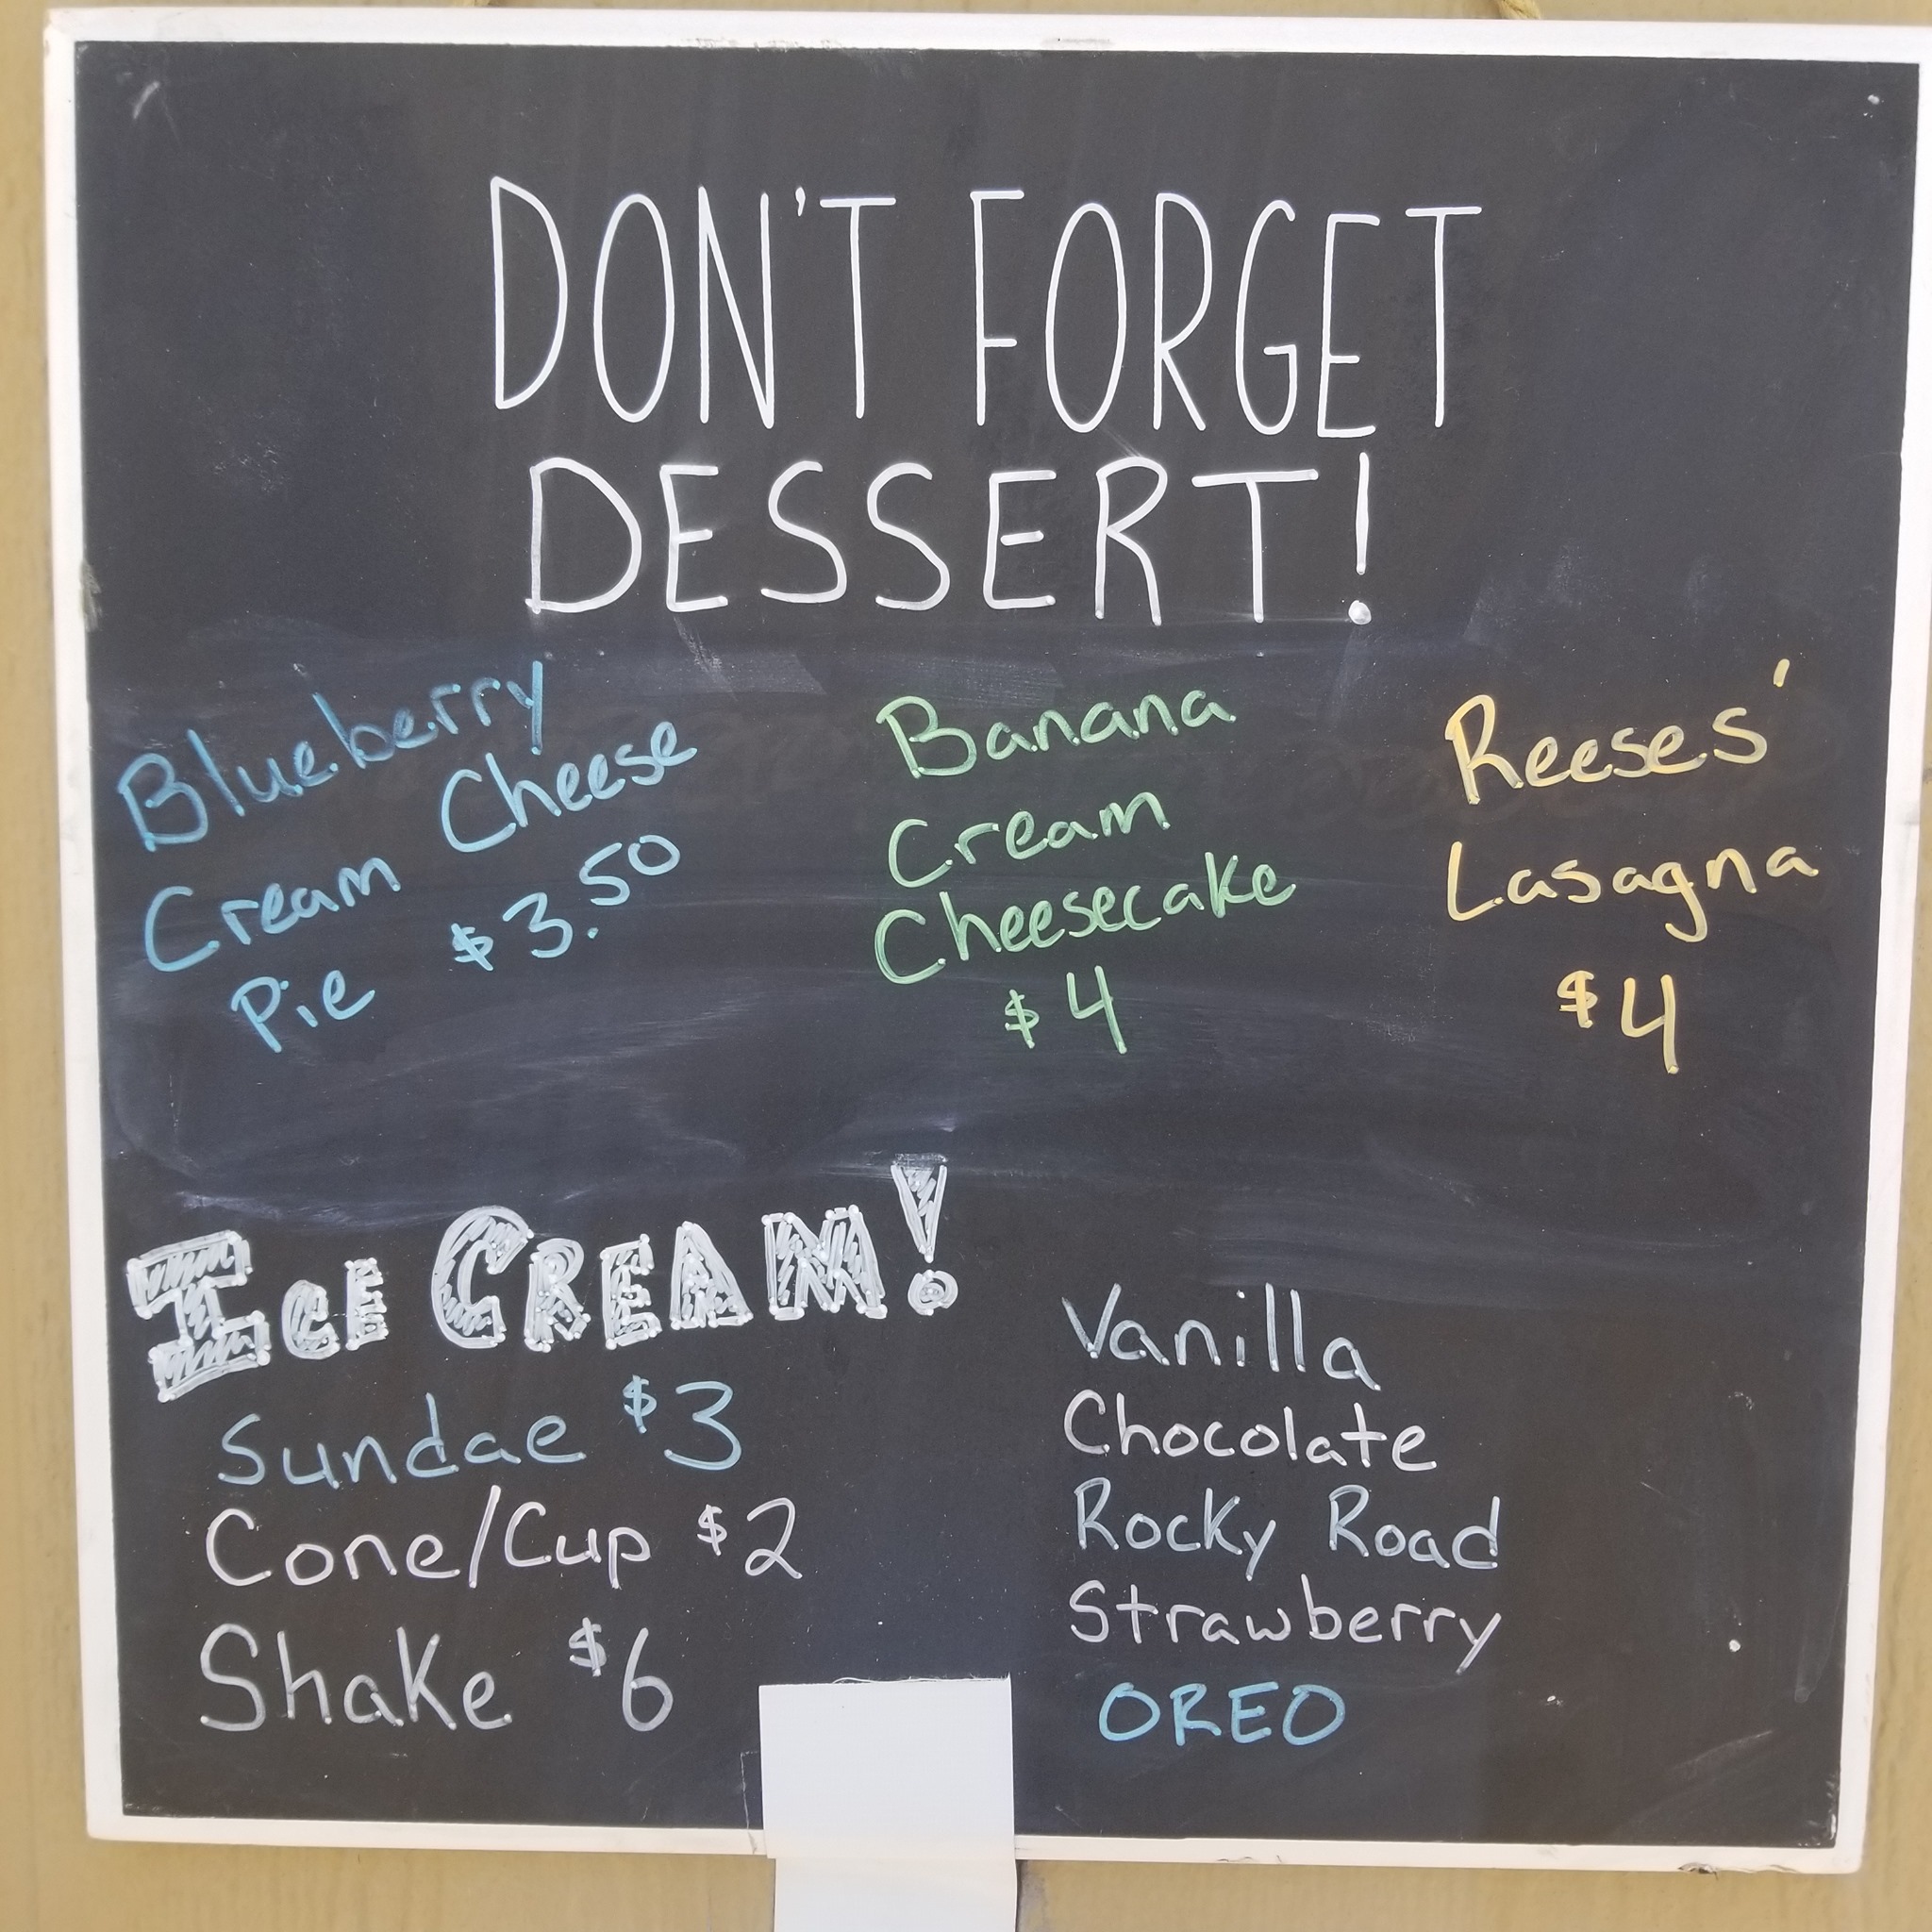 DON'T FORGET
DESSERT!
Blueberry
Cream Cheese
Pie $3.50
Banana
Cream
Cheesecake
$4
Reeses'
Lasagna
$4
ICE CREAM!
Sundae $3
Cone/Cup $2
Shake $6
Vanilla
Chocolate
Rocky Road
Strawberry
OREO